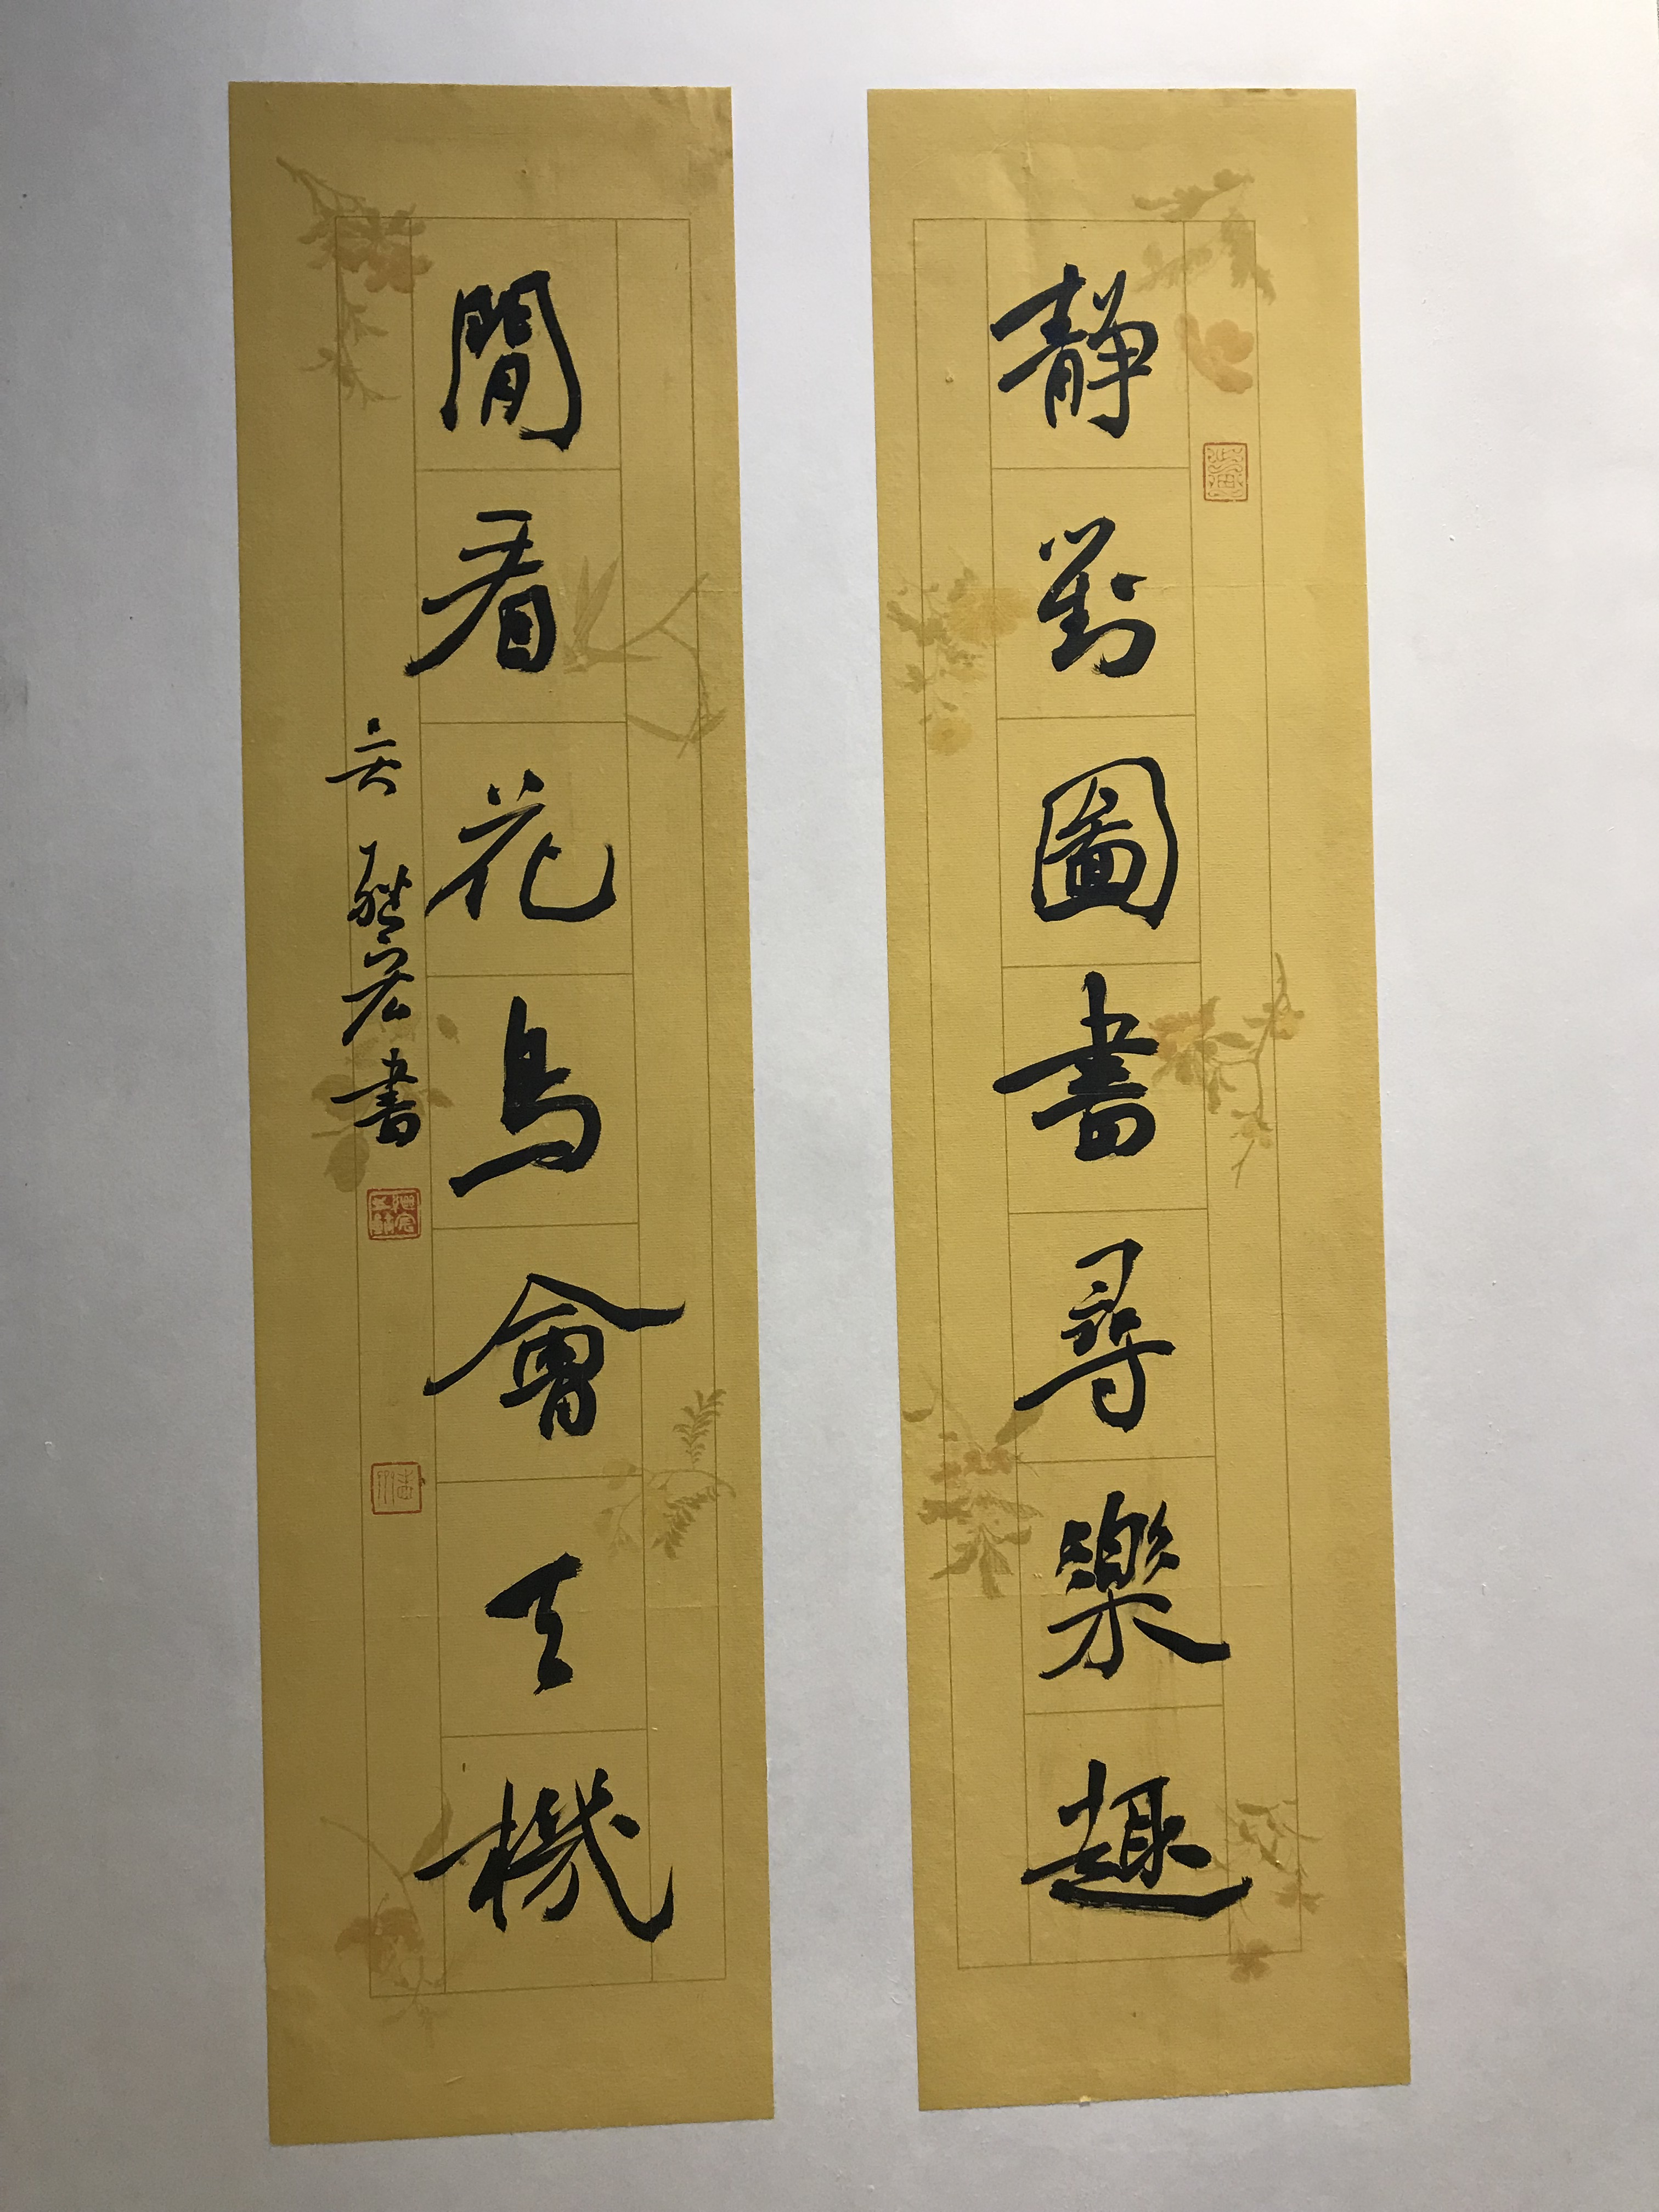 靜對圖書尋樂趣
閒看花鳥會天機
宏書